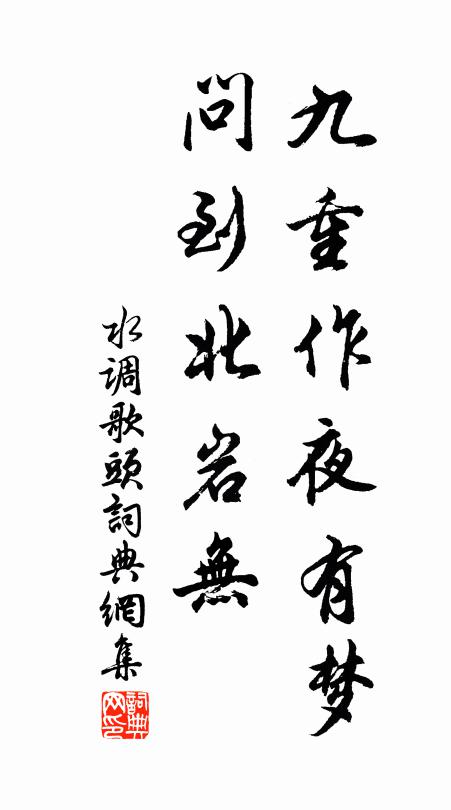 九重作夜有梦
问到北岩無
水调歌頭詞典網集
詞典网印